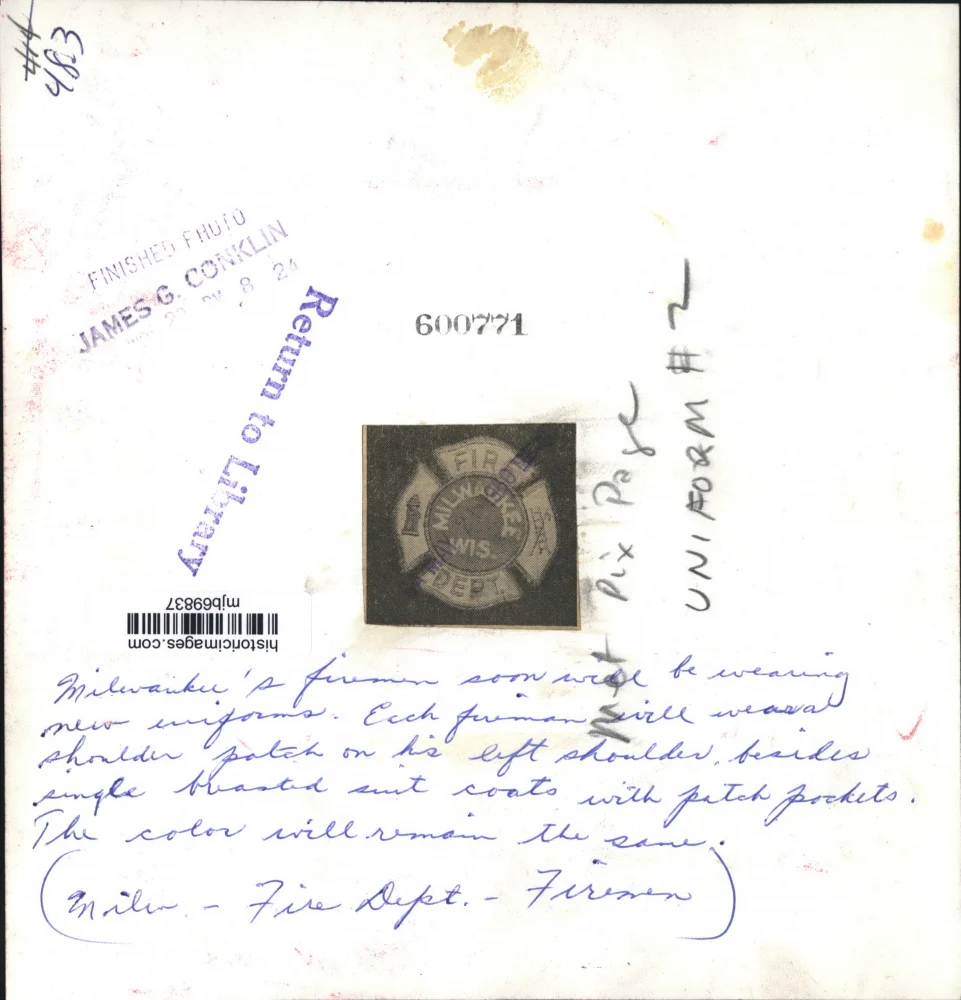 483
FINISHED PHOTO
JAMES G. CONKLIN
8 24
Return to Library
600771
UNIFORM # 2
Pix Page
FIRE
MILWAUKEE
WIS.
DEPT.
historicimages.com
mjb69837
Milwaukee's firemen soon will be wearing
new uniforms. Each fireman will wear a
shoulder patch on his left shoulder, besides
single breasted suit coats with patch pockets.
The color will remain the same.
(Milw. - Fire Dept. - Firemen)